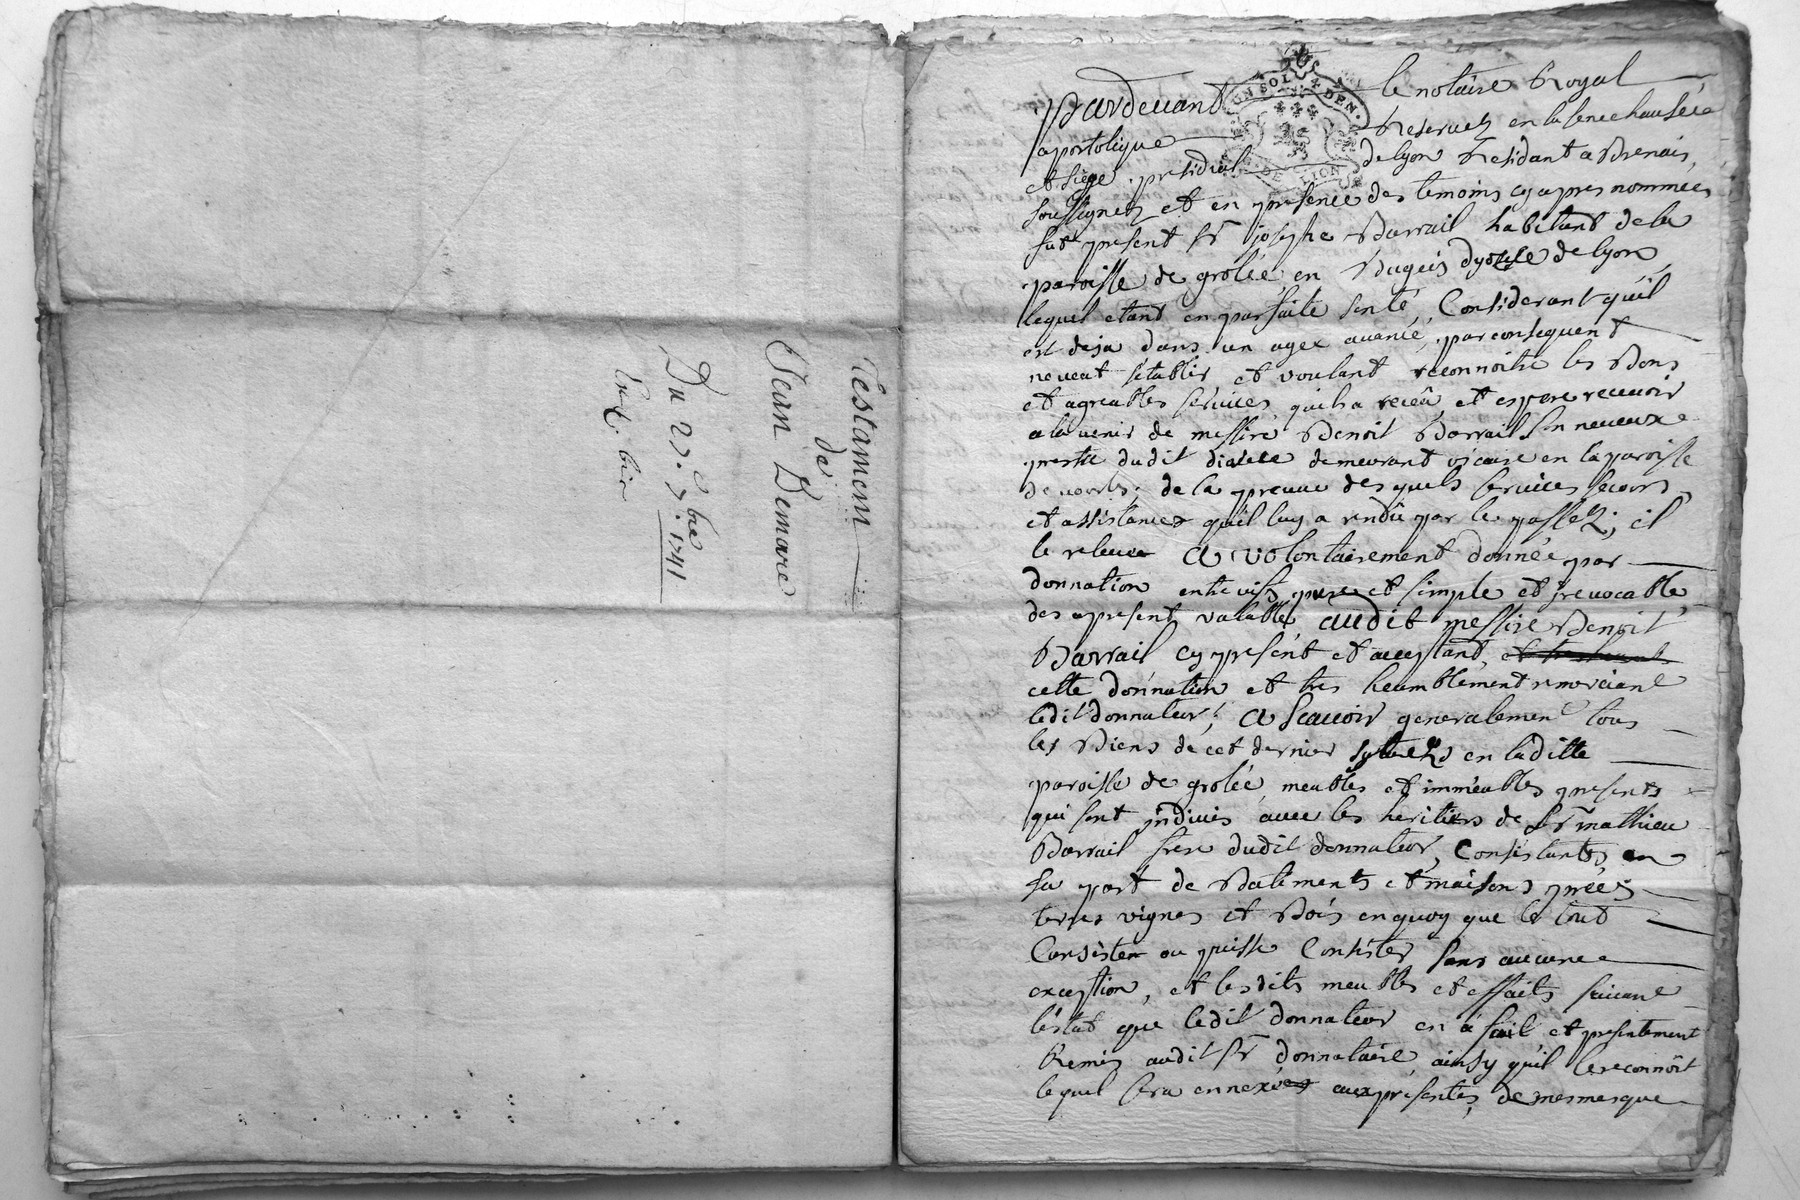 Testament
de
Jean Demare
Du 27.e 7.bre 1741
UN SOL 4 DEN.
DE LION
Pardevant le notaire Royal
apostolique Reservez en la senechaussée
et siege presidial de lyon Residant a Brenais,
soussignez et en presence des temoins cy apres nommées
fut present Sr. josephe Barrail habitant de la
paroisse de grolée en Bugeis dyosese de lyon,
lequel etant en parfaite senté, Considerant qu'il
est deja dans un agee avancé, par consequent
ne veut s'etablir, et voulant reconnoitre les Bons
et agreables services, qu'il a recëu, et espere recevoir
a lavenir de messire Benoit Barrail son neveux
prestre dudit diosese demeurant vicaire en la paroisse
de; de la preuve des quels services secours,
et assistances qu'il luy a rendu par le passez; il
le releve a volontairement donnée par
donnation entre vifs pure et simple et jrevocable
des apresent valable audit messire Benoit
Barrail cy present et acceptant,
cette donnation et tres heumblement remerciant
ledit donnateur; a scavoir generalement tous
les Biens de cet dernier sytuezs en laditte
paroisse de grolée, meubles et immeubles presents
qui sont jndivis avec les heritiers de Sr. mathieu
Barrail frere dudit donnateur, Consistants en
sa part de Batiments et maisons prées
terres vignes et Bois en quoy que le tout
Consister ou puisse Consister sans aucune
exception, et lesdits meubles et effaits suivant
l'estat que ledit donnateur en a fait et presentement
Remis audit Sr. donnataire, ainsy qu'il le reconnôit
lequel sera ennexée aux presentes, de mesme que